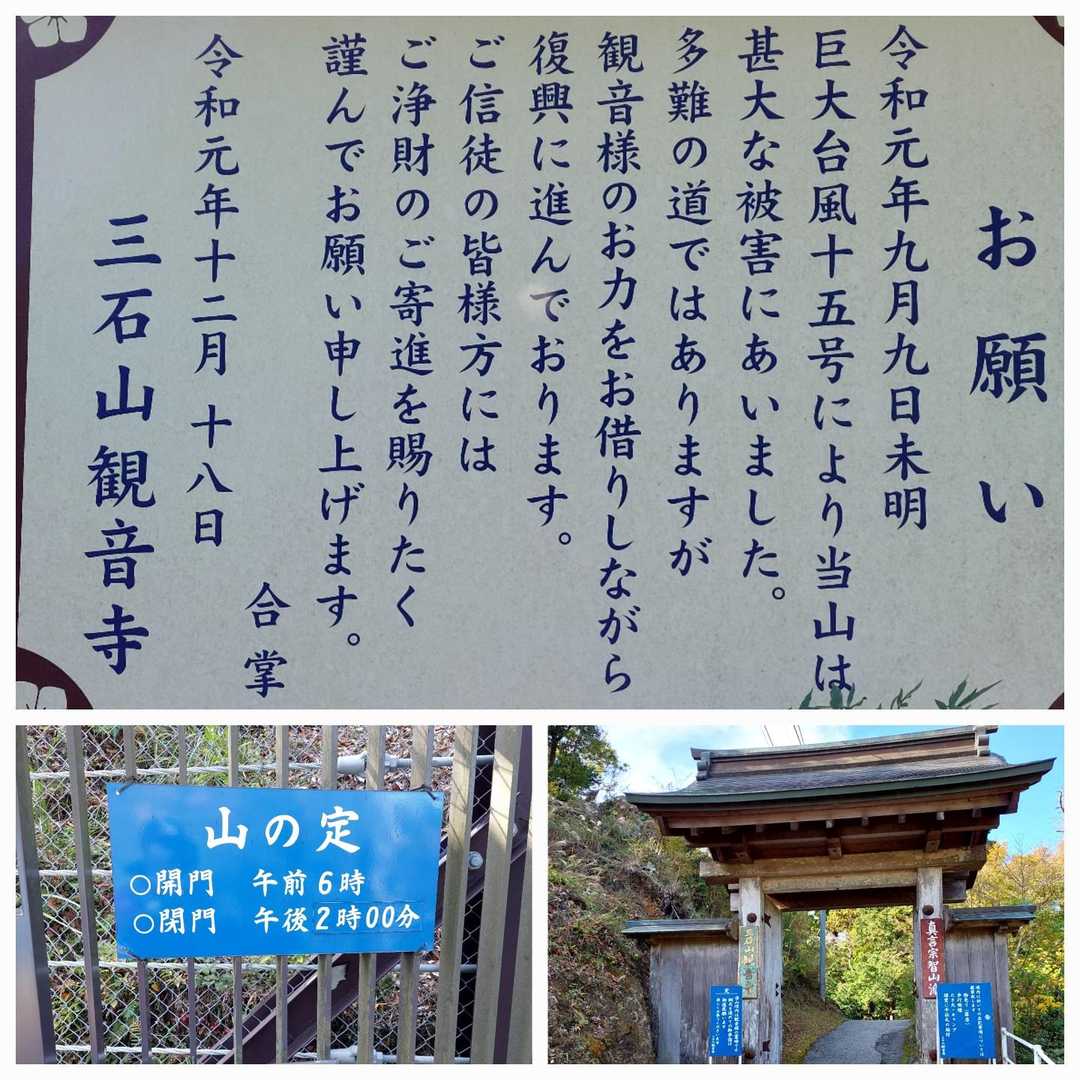 お願い
令和元年九月九日未明
巨大台風十五号により当山は
甚大な被害にあいました。
多難の道ではありますが
観音様のお力をお借りしながら
復興に進んでおります。
ご信徒の皆様方には
ご浄財のご寄進を賜りたく
謹んでお願い申し上げます。
合掌
令和元年十二月十八日
三石山観音寺
山の定
○開門 午前6時
○閉門 午後2時00分
真言宗智山派
三石山観音寺
定